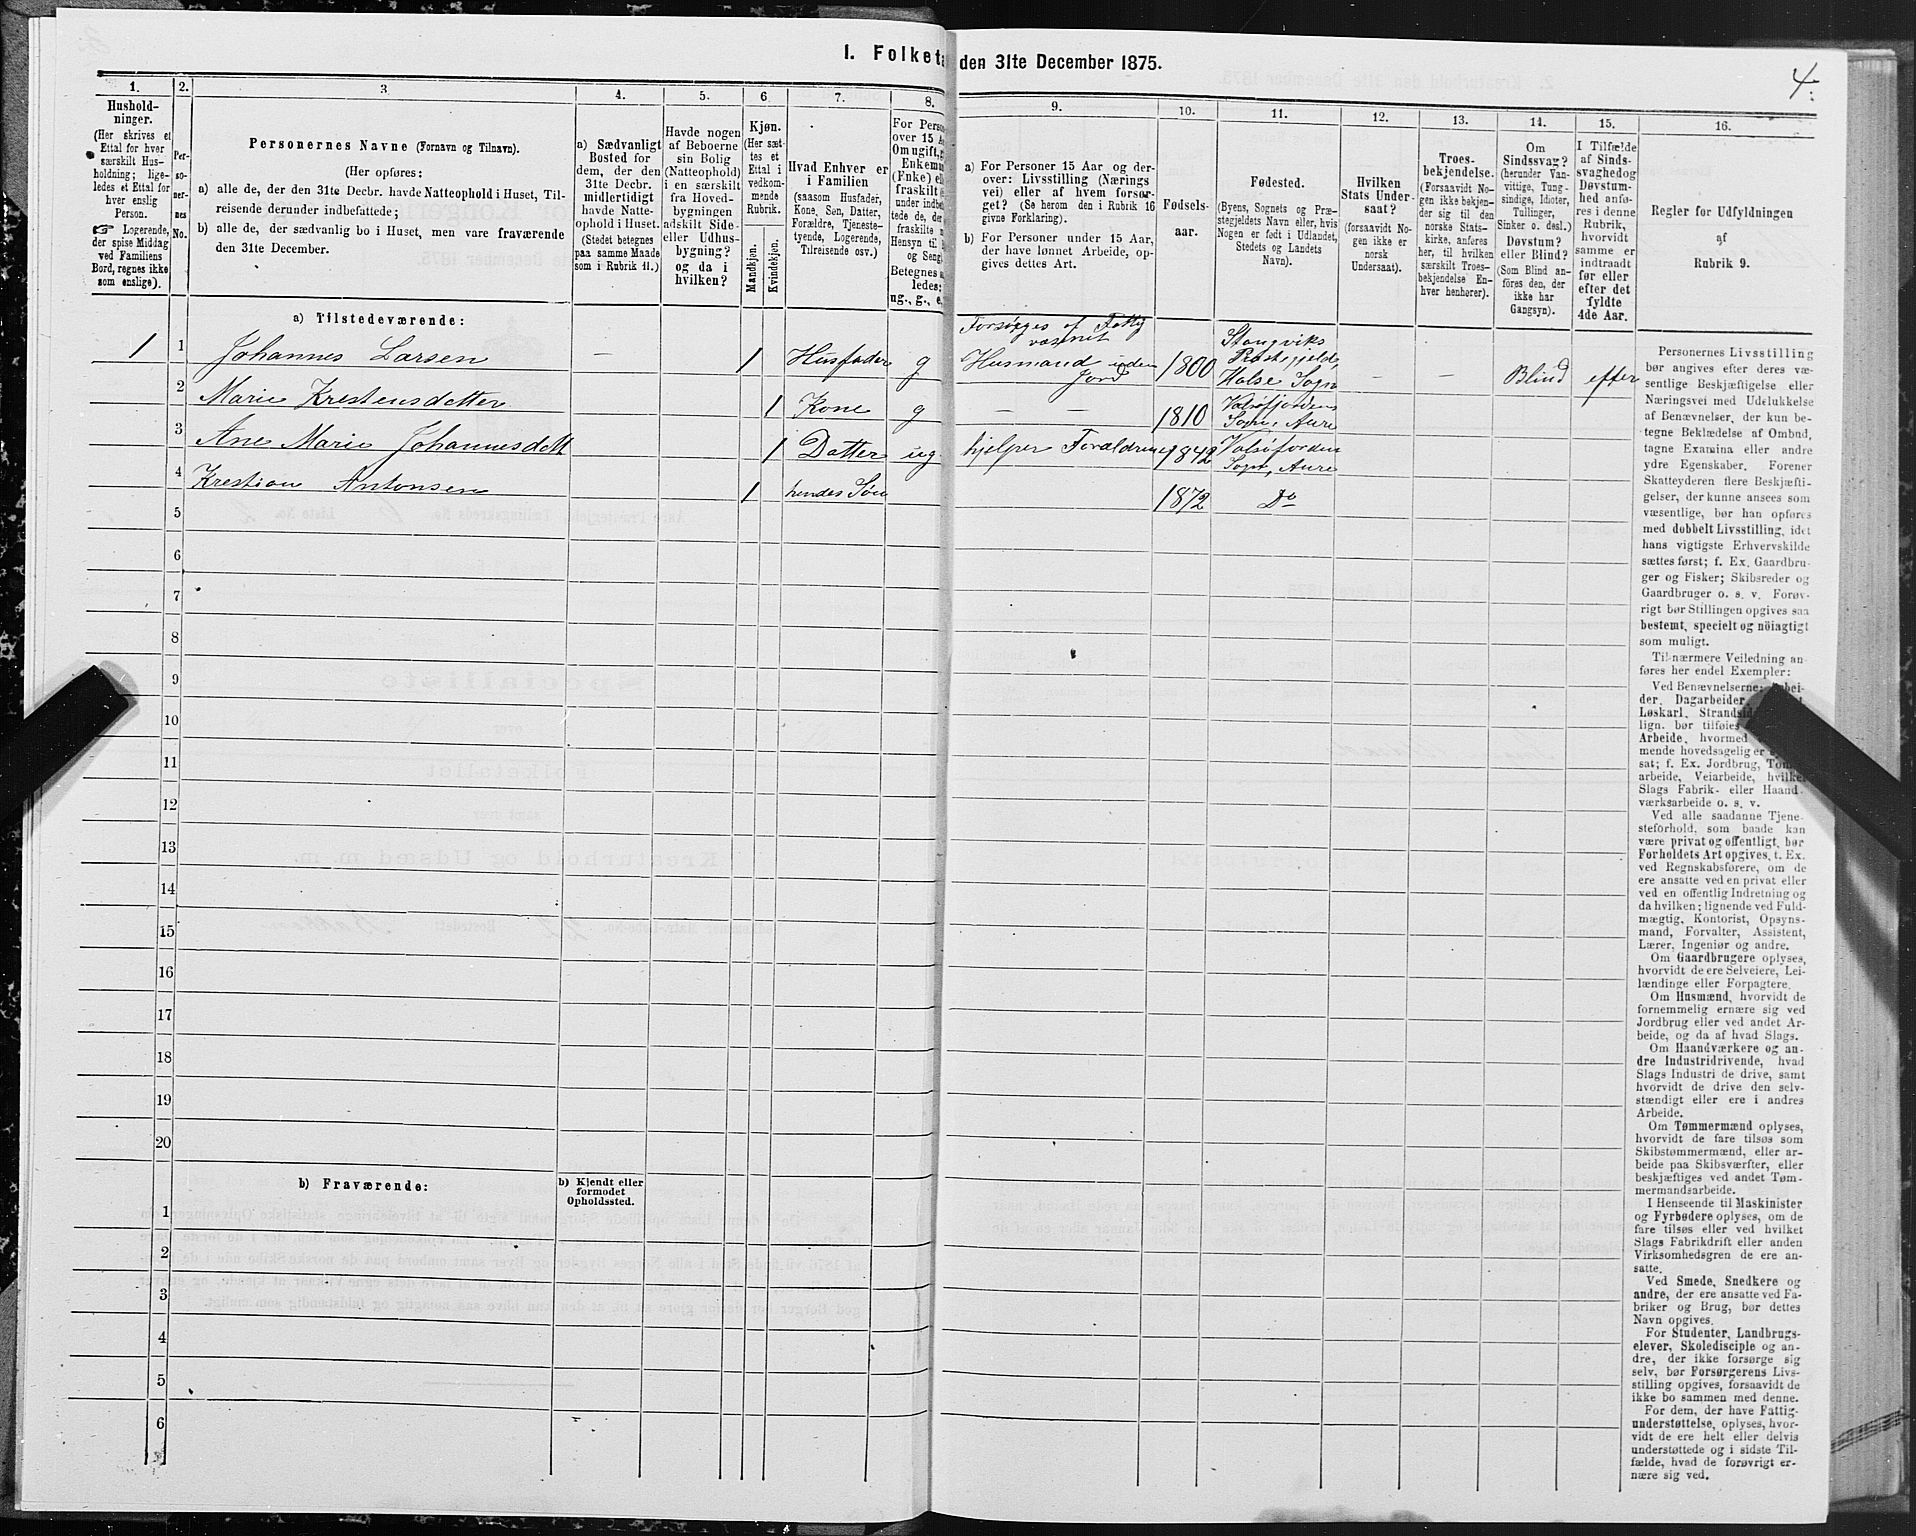 I. Folketa
den 31te December 1875.
4.
1.
Hushold-
ninger.
(Her skrives et
Ettal for hver
særskilt Hus-
holdning; lige-
ledes et Ettal for
hver enslig
Person.
☞ Logerende,
der spise Middag
ved Familiens
Bord, regnes ikke
som enslige).
2.
Per-
so-
ner-
nes
No.
3
Personernes Navne (Fornavn og Tilnavn).
(Her opføres:
a) alle de, der den 31te Decbr. havde Natteophold i Huset, Til-
reisende derunder indbefattede;
b) alle de, der sædvanlig bo i Huset, men vare fraværende
den 31te December.
4.
a) Sædvanligt
Bosted for
dem, der den
31te Decbr.
midlertidigt
havde Natte-
ophold i Huset.
(Stedet betegnes
paa samme Maade
som i Rubrik 11.)
5.
Havde nogen
af Beboerne
sin Bolig
(Natteophold)
i en særskilt
fra Hoved-
bygningen
adskilt Side-
eller Udhus-
bygning?
og da i
hvilken?
6
Kjøn.
(Her sæt-
tes et
Ettal i
vedkom-
mende
Rubrik.
Mandkjøn.
Kvindekjøn.
7.
Hvad Enhver er
i Familien
(saasom Husfader,
Kone, Søn, Datter,
Forældre, Tjeneste-
tyende, Logerende,
Tilreisende osv.)
8.
For Person
over 15 A
Om ugift, g
Enkem
(Fnke) e
fraskilt
under indbe
tede de, de
fraskilte
Hensyn til
og Seng
Betegnes
ledes:
ug., g., e.
9.
a) For Personer 15 Aar og der-
over: Livsstilling (Nærings
vei) eller af hvem forsør-
get? (Se herom den i Rubrik 16
givne Forklaring).
b) For Personer under 15 Aar,
der have lønnet Arbeide, op-
gives dettes Art.
10.
Fødsels-
aar.
11.
Fødested.
(Byens, Sognets og Præ-
stegjeldets Navn eller, hvis
Nogen er født i Udlandet,
Stedets og Landets
Navn).
12.
Hvilken
Stats Under-
saat?
(forsaavidt No-
gen ikke er
norsk
Undersaat).
13.
Troes-
bekjendelse.
(Forsaavidt No-
gen ikke bekjen-
der sig til den
norske Stats-
kirke, anføres
her, til hvilken
særskilt Troes-
bekjendelse En-
hver henhører).
14.
Om
Sindssvag?
(herunder Van-
vittige, Tung-
sindige, Idioter,
Tullinger,
Sinker o. desl.)
Døvstum?
eller Blind?
(Som Blind an-
føres den, der
ikke har
Gangsyn).
15.
I Tilfælde
af Sinds-
svaghed og
Døvstum-
hed anfø-
res i denne
Rubrik,
hvorvidt
samme er
indtraadt
før eller
efter det
fyldte
4de Aar.
16.
Regler for Udfyldningen
af
Rubrik 9.
a) Tilstedeværende:
1 1 Johannes Larsen — 1 Husfader g Forsørges af Fattig væsnet Husmand uden Jord 1800 Stangviks Præstegjeld, Halse Sogn — — Blind efter
2 Marie Krestensdatter 1 Kone g — — 1810 Valsøfjordens Sogn, Aure
3 Ane Marie Johannesdatt 1 Datter ug hjelper Forældrene 1842 Valsøfjorden Sogn, Aure
4 Krestian Antonsen 1 hendes Søn 1872 Do
5
6
7
8
9
10
11
12
13
14
15
16
17
18
19
20
b) Fraværende:
b) Kjendt eller
formodet
Opholdssted.
1
2
3
4
5
6
Personernes Livsstilling
bør angives efter deres væ-
sentlige Beskjæftigelse eller
Næringsvei med Udelukkelse
af Benævnelser, der kun be-
tegne Beklædelse af Ombud,
tagne Examina eller andre
ydre Egenskaber. Forener
Skatteyderen flere Beskjæfti-
gelser, der kunne ansees som
væsentlige, bør han opføres
med dobbelt Livsstilling, idet
hans vigtigste Erhvervskilde
sættes først; f. Ex. Gaardbru-
ger og Fisker; Skibsreder og
Gaardbruger o. s. v. Forøv-
rigt bør Stillingen opgives saa
bestemt, specielt og nöiagtigt
som muligt.
Til nærmere Veiledning an-
føres her endel Exempler:
Ved Benævnelserne:
der, Dagarbeider,
Løskarl, Strandsi
lign. bør tilføies
Arbeide, hvormed
mende hovedsagelig er
sat; f. Ex. Jordbrug, Tøm
arbeide, Veiarbeide, hvilke
Slags Fabrik- eller Haand
værksarbeide o. s. v.
Ved alle saadanne Tjene-
steforhold, som baade kan
være privat og offentligt, bør
Forholdets Art opgives, t. Ex.
ved Regnskabsførere, om de
ere ansatte ved en privat eller
ved en offentlig Indretning og
da hvilken; lignende ved Fuld-
mægtig, Kontorist, Opsyns-
mand, Forvalter, Assistent,
Lærer, Ingeniør og andre.
Om Gaardbrugere oplyses,
hvorvidt de ere Selveiere, Lei-
lændinge eller Forpagtere.
Om Husmænd, hvorvidt de
fornemmelig ernære sig ved
Jordbrug eller ved andet Ar-
beide, og da af hvad Slags.
Om Haandværkere og an-
dre Industridrivende, hvad
Slags Industri de drive, samt
hvorvidt de drive den selv-
stændigt eller ere i andres
Arbeide.
Om Tømmermænd oplyses,
hvorvidt de fare tilsøs som
Skibstømmermænd, eller ar-
beide paa Skibsværfter, eller
beskjæftiges ved andet Tøm-
mermandsarbeide.
I Henseende til Maskinister
og Fyrbødere oplyses, om de
fare tilsøs eller ved hvilket
Slags Fabrikdrift eller anden
Virksomhedsgren de ere an-
satte.
Ved Smede, Snedkere og
andre, der ere ansatte ved Fa-
briker og Brug, bør dettes
Navn opgives.
For Studenter, Landbrugs-
elever, Skoledisciple og an-
dre, der ikke forsørge sig
selv, bør Forsørgerens Livs-
stilling opgives, forsaavidt de
ikke bo sammen med denne.
For dem, der have Fattig-
understøttelse, oplyses, hvor-
vidt de ere helt eller delvis
understøttede og i sidste Til-
fælde, hvad de forøvrigt er-
nære sig ved.